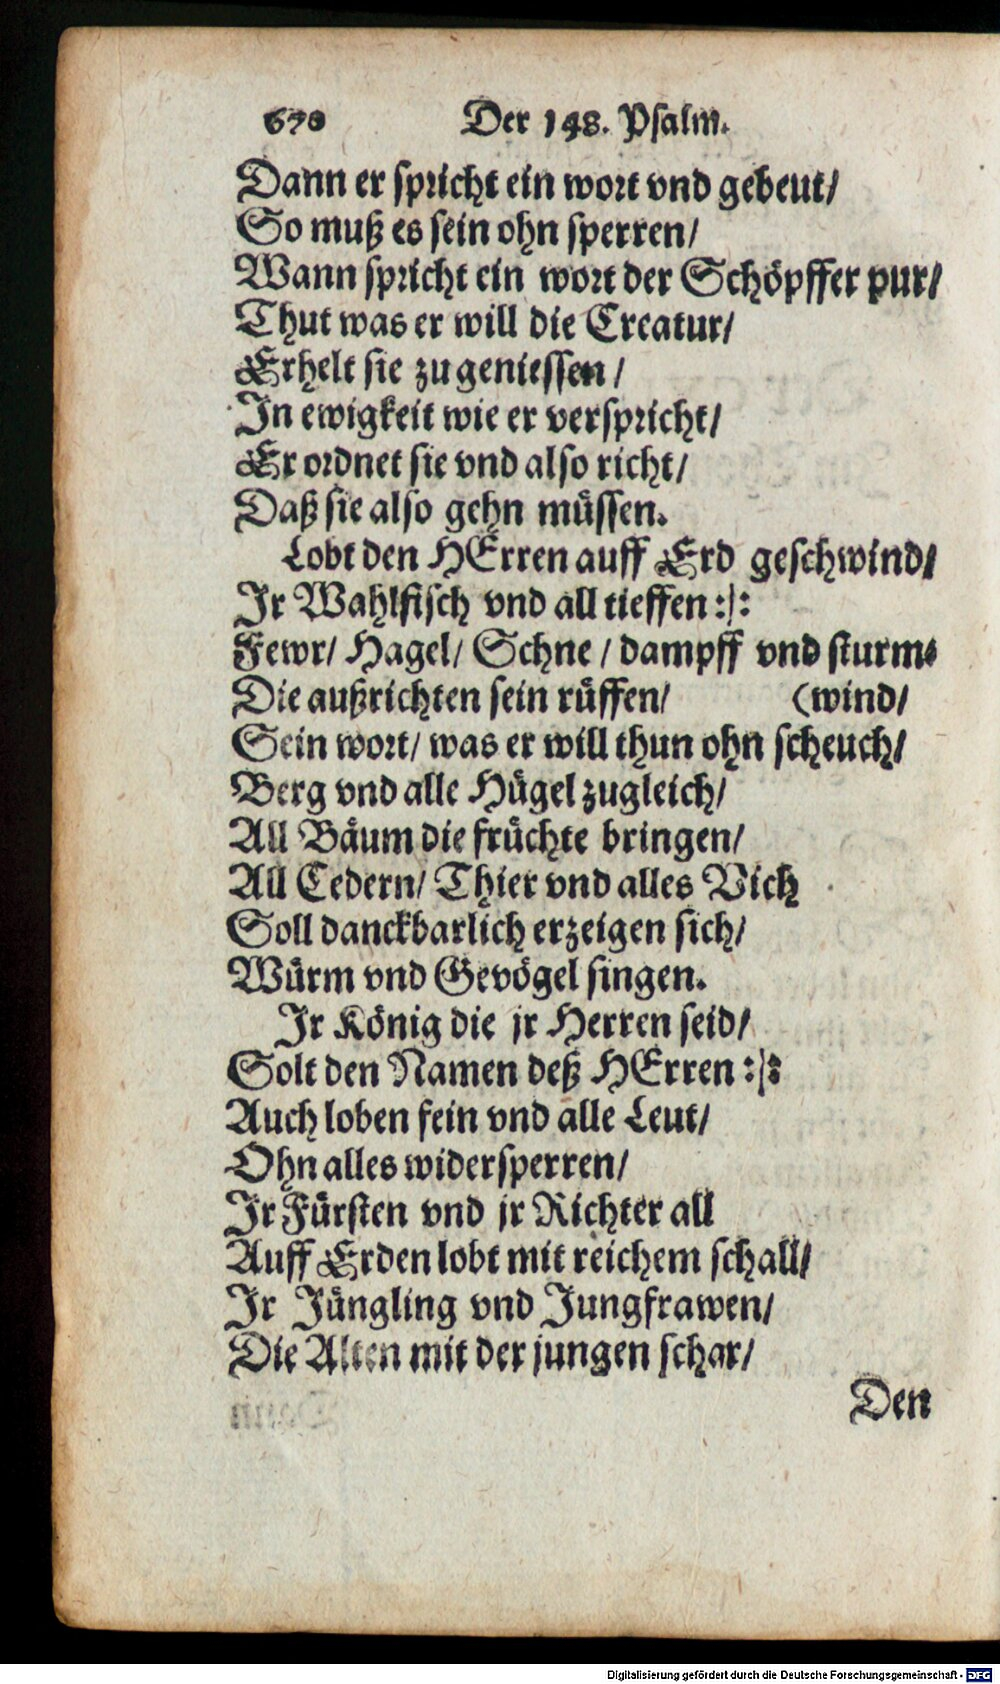 670 Der 148. Psalm.
Dann er spricht ein wort vnd gebeut/
So muß es sein ohn sperren/
Wann spricht ein wort der Schöpffer pur/
Thut was er will die Creatur/
Erhelt sie zu geniessen/
In ewigkeit wie er verspricht/
Er ordnet sie vnd also richt/
Daß sie also gehn müssen.
Lobt den HErren auff Erd geschwind/
Ir Wahlfisch vnd all tieffen :/:
Fewr/ Hagel/ Schne/ dampff vnd sturm⸗
Die außrichten sein rüffen/ (wind/
Sein wort/ was er will thun ohn scheuch/
Berg vnd alle Hügel zugleich/
All Bäum die früchte bringen/
All Cedern/ Thier vnd alles Vich
Soll danckbarlich erzeigen sich/
Würm vnd Gevögel singen.
Ir König die jr Herren seid/
Solt den Namen deß HErren :/:
Auch loben fein vnd alle Leut/
Ohn alles widersperren/
Ir Fürsten vnd jr Richter all
Auff Erden lobt mit reichem schall/
Ir Jüngling vnd Jungfrawen/
Die Alten mit der jungen schar/
Den
Digitalisierung gefördert durch die Deutsche Forschungsgemeinschaft - DFG